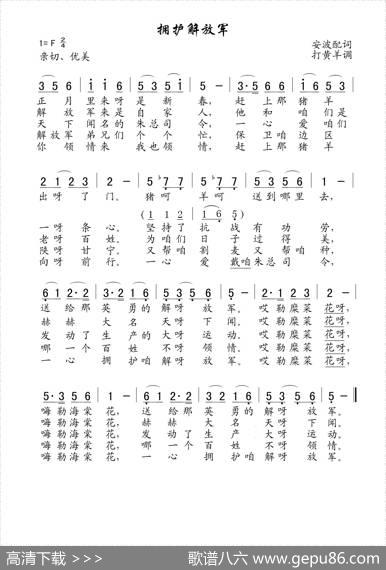 拥护解放军
1=F 2/4
安波配词
亲切、优美
打黄羊调
3 5 6 | i i 6 | 5 3 5 | 5 - | 3 5 6 | i 6 5 3 |
正月里来呀是新春，赶上那猪羊
解放军来是自家人，他和咱们是
天下闻名的朱总司令，一心爱咱们
解放军弟兄们个个忙，保卫咱边区
你领情来我也领情，赶上那猪羊
2 1 2 3 | 2 - | 5 ♭7 7 | 5 ♭7 7 | 5 3 5 6 | 1 - |
出呀了门。猪呵羊呵送到哪里去，
(i i 2 | i 6 5)
一呀条心。坚持了抗战有功劳，
老呀百姓。为咱们日子过得美，
陕呀甘宁。又帮咱割麦又帮咱种，
向呀前行。一心爱戴咱朱总司令，
6 1 2·2 | 3 1 2 | 5·3 5 6 | 5 - | 2·1 2 3 | 2 1 |
送给那英勇的解呀放军。哎勒糜菜花呀，
赫赫大名天呀下闻。哎勒糜菜花呀，
发动了生产的大呀运动。哎勒糜菜花呀，
哪一个百姓不呀领情。哎勒糜菜花呀，
一心拥护咱解呀放军。哎勒糜菜花呀，
5·3 5 6 | 1 - | 6 1 2·2 | 3 1 2 | 5·3 5 6 | 5 - ‖
嗨勒海棠花，送给那英勇的解呀放军。
嗨勒海棠花，赫赫大名天呀下闻。
嗨勒海棠花，发动了生产大运动。
嗨勒海棠花，哪一个百姓不呀领情。
嗨勒海棠花，一心拥护咱解呀放军。
高清下载 >>>
歌谱八六 www.gepu86.com